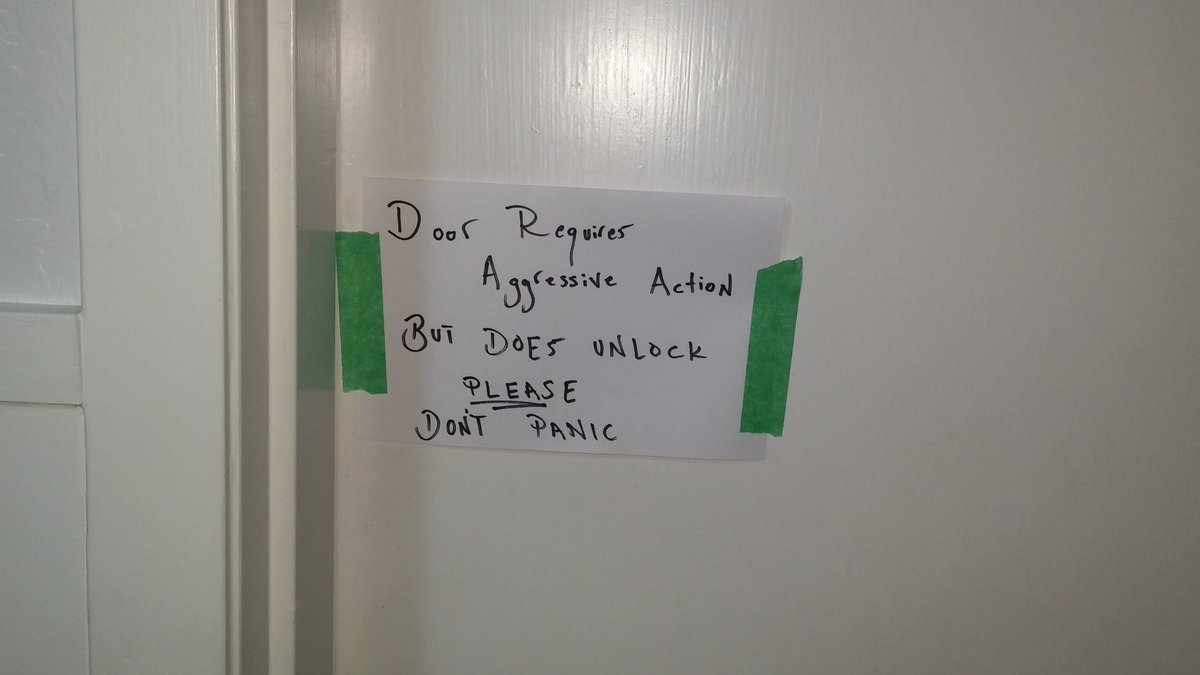 Door Requires
Aggressive Action
BUT DOES UNLOCK
PLEASE
DON'T PANIC